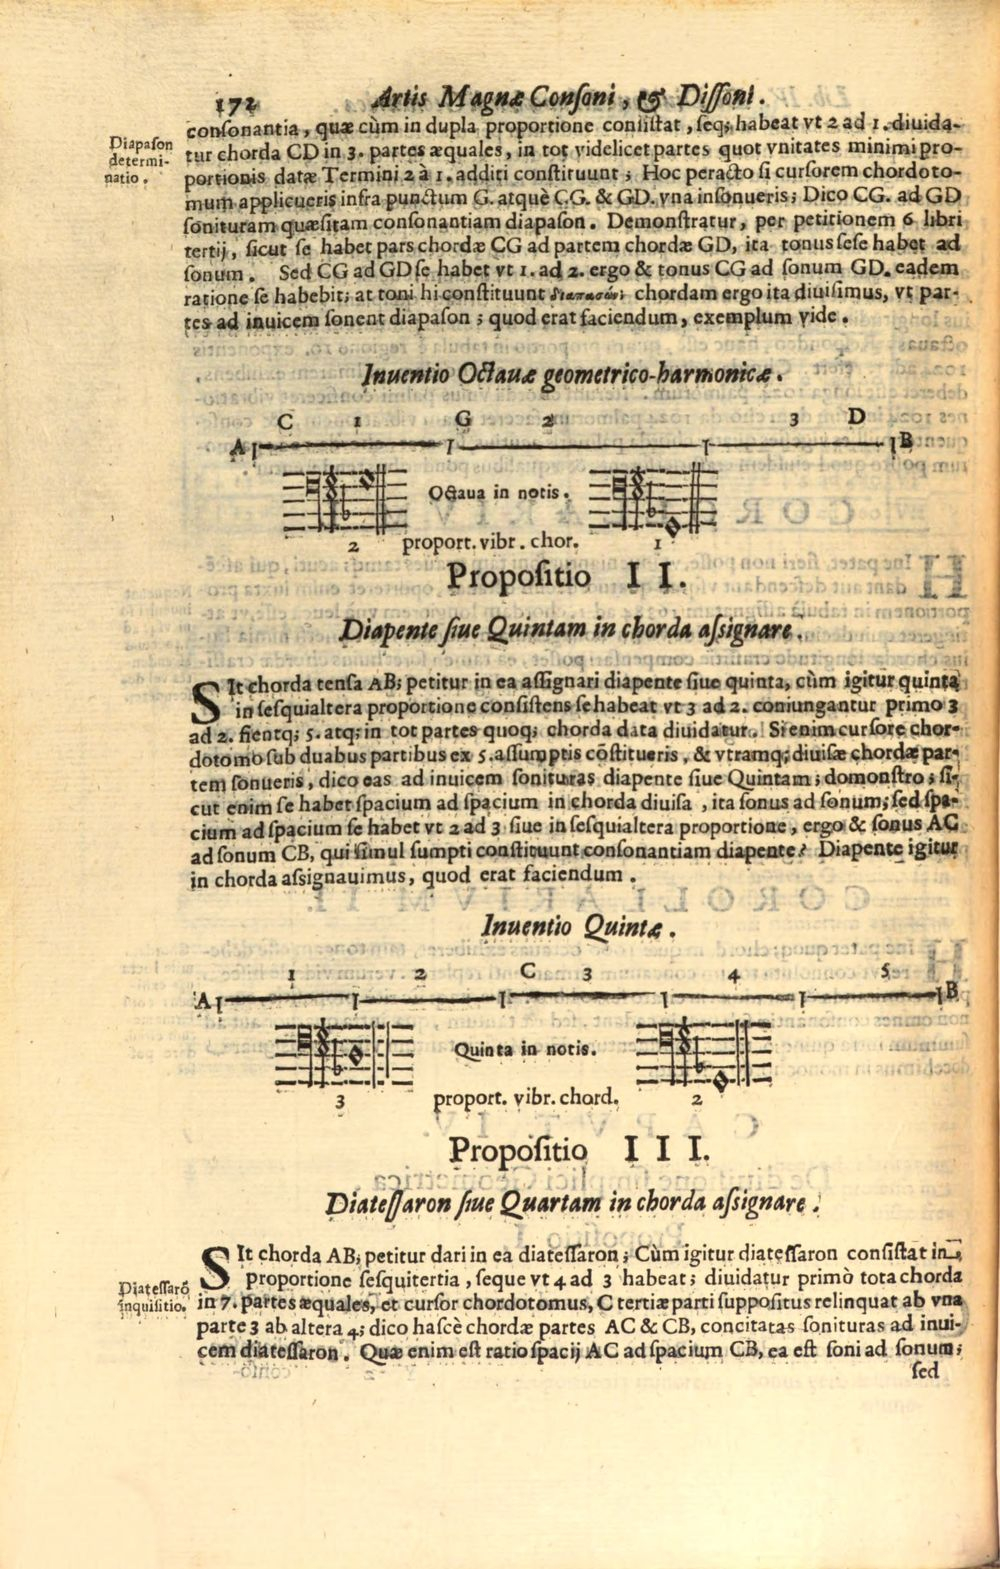 172 Artis Magnæ Consoni, & Dissoni.
Diapason
determi-
natio.
consonantia, quæ cùm in dupla proportione consistat, seq; habeat vt 2 ad 1. diuida-
tur chorda CD in 3. partes æquales, in tot videlicet partes quot vnitates minimi pro-
portionis datæ Termini 2 à 1. additi constituunt; Hoc peracto si cursorem chordoto-
mum applicueris infra punctum G. atquè CG. & GD. vna insonueris; Dico CG. ad GD
sonituram quæsitam consonantiam diapason. Demonstratur, per petitionem 6 libri
tertij, sicut se habet pars chordæ CG ad partem chordæ GD, ita tonus sese habet ad
sonum. Sed CG ad GD se habet vt 1. ad 2. ergo & tonus CG ad sonum GD. eadem
ratione se habebit; at toni hi constituunt διαπασῶν; chordam ergo ita diuisimus, vt par-
tes ad inuicem sonent diapason; quod erat faciendum, exemplum vide.
Inuentio Octauæ geometrico-harmonicæ.
C 1 G 2 3 D
A B
Octaua in notis.
2 proport. vibr. chor. 1
Propositio II.
Diapente siue Quintam in chorda assignare.
SIt chorda tensa AB; petitur in ea assignari diapente siue quinta, cùm igitur quinta
in sesquialtera proportione consistens se habeat vt 3 ad 2. coniungantur primo 3
ad 2. fientq; 5. atq; in tot partes quoq; chorda data diuidatur. Si enim cursore chor-
dotomo sub duabus partibus ex 5. assumptis cōstitueris, & vtramq; diuisæ chordæ par-
tem sonueris, dico eas ad inuicem sonituras diapente siue Quintam; domonstro; si-
cut enim se habet spacium ad spacium in chorda diuisa, ita sonus ad sonum; sed spa-
cium ad spacium se habet vt 2 ad 3 siue in sesquialtera proportione, ergo & sonus AC
ad sonum CB, qui simul sumpti constituunt consonantiam diapente? Diapente igitur
in chorda assignauimus, quod erat faciendum.
Inuentio Quintæ.
1 2 C 3 4 5
A B
Quinta in notis.
3 proport. vibr. chord. 2
Propositio III.
Diatessaron siue Quartam in chorda assignare.
Diatessarō
inquisitio.
SIt chorda AB; petitur dari in ea diatessaron; Cùm igitur diatessaron consistat in
proportione sesquitertia, seque vt 4 ad 3 habeat; diuidatur primò tota chorda
in 7. partes æquales, et cursor chordotomus, C tertiæ parti suppositus relinquat ab vna
parte 3 ab altera 4; dico hascè chordæ partes AC & CB, concitatas sonituras ad inui-
cem diatessaron. Quæ enim est ratio spacij AC ad spacium CB, ea est soni ad sonum;
sed